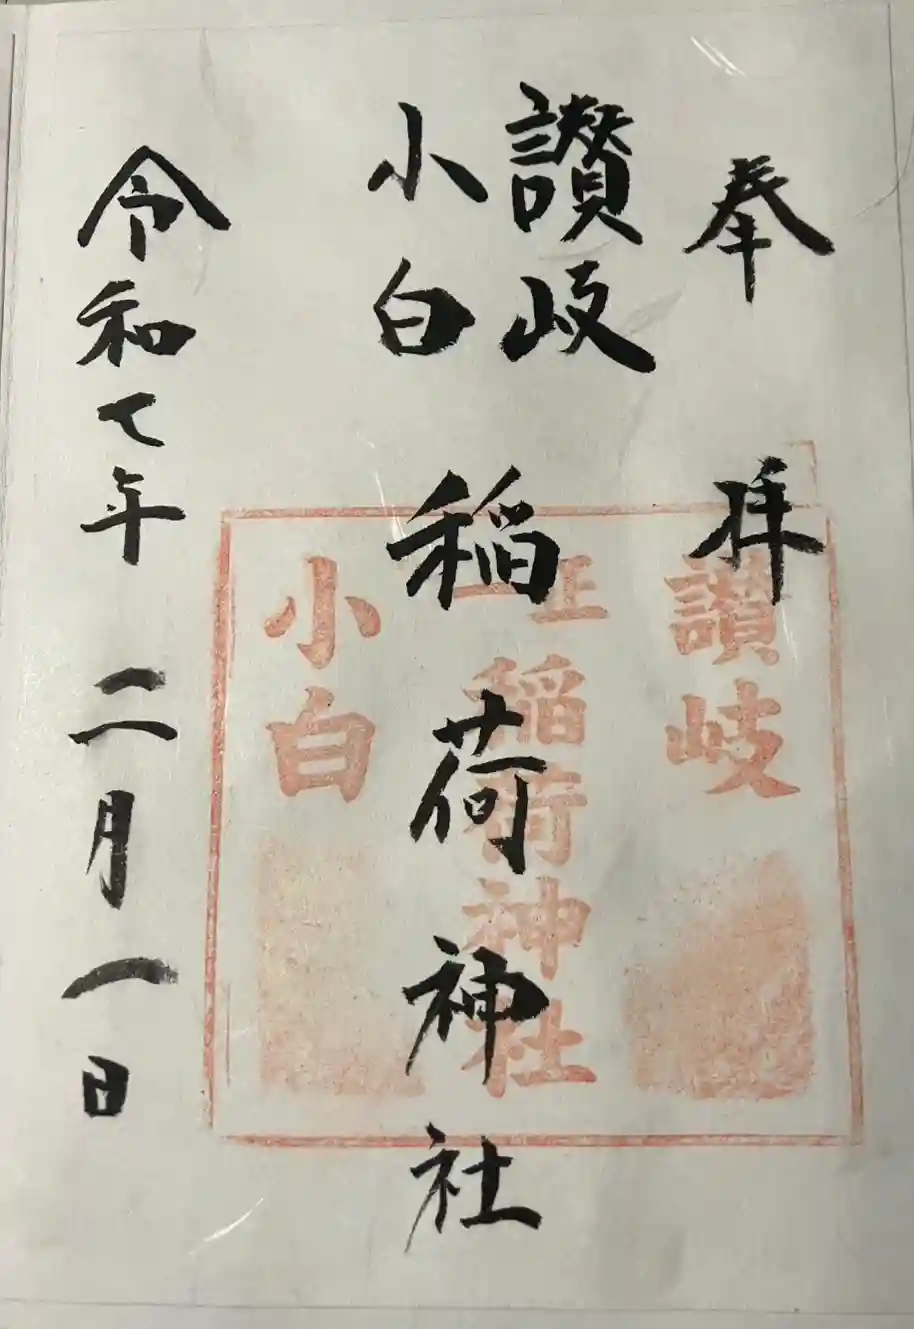 奉拝
讃岐
小白
稲荷神社
令和七年二月一日
讃岐
正一
稲荷神社
小白